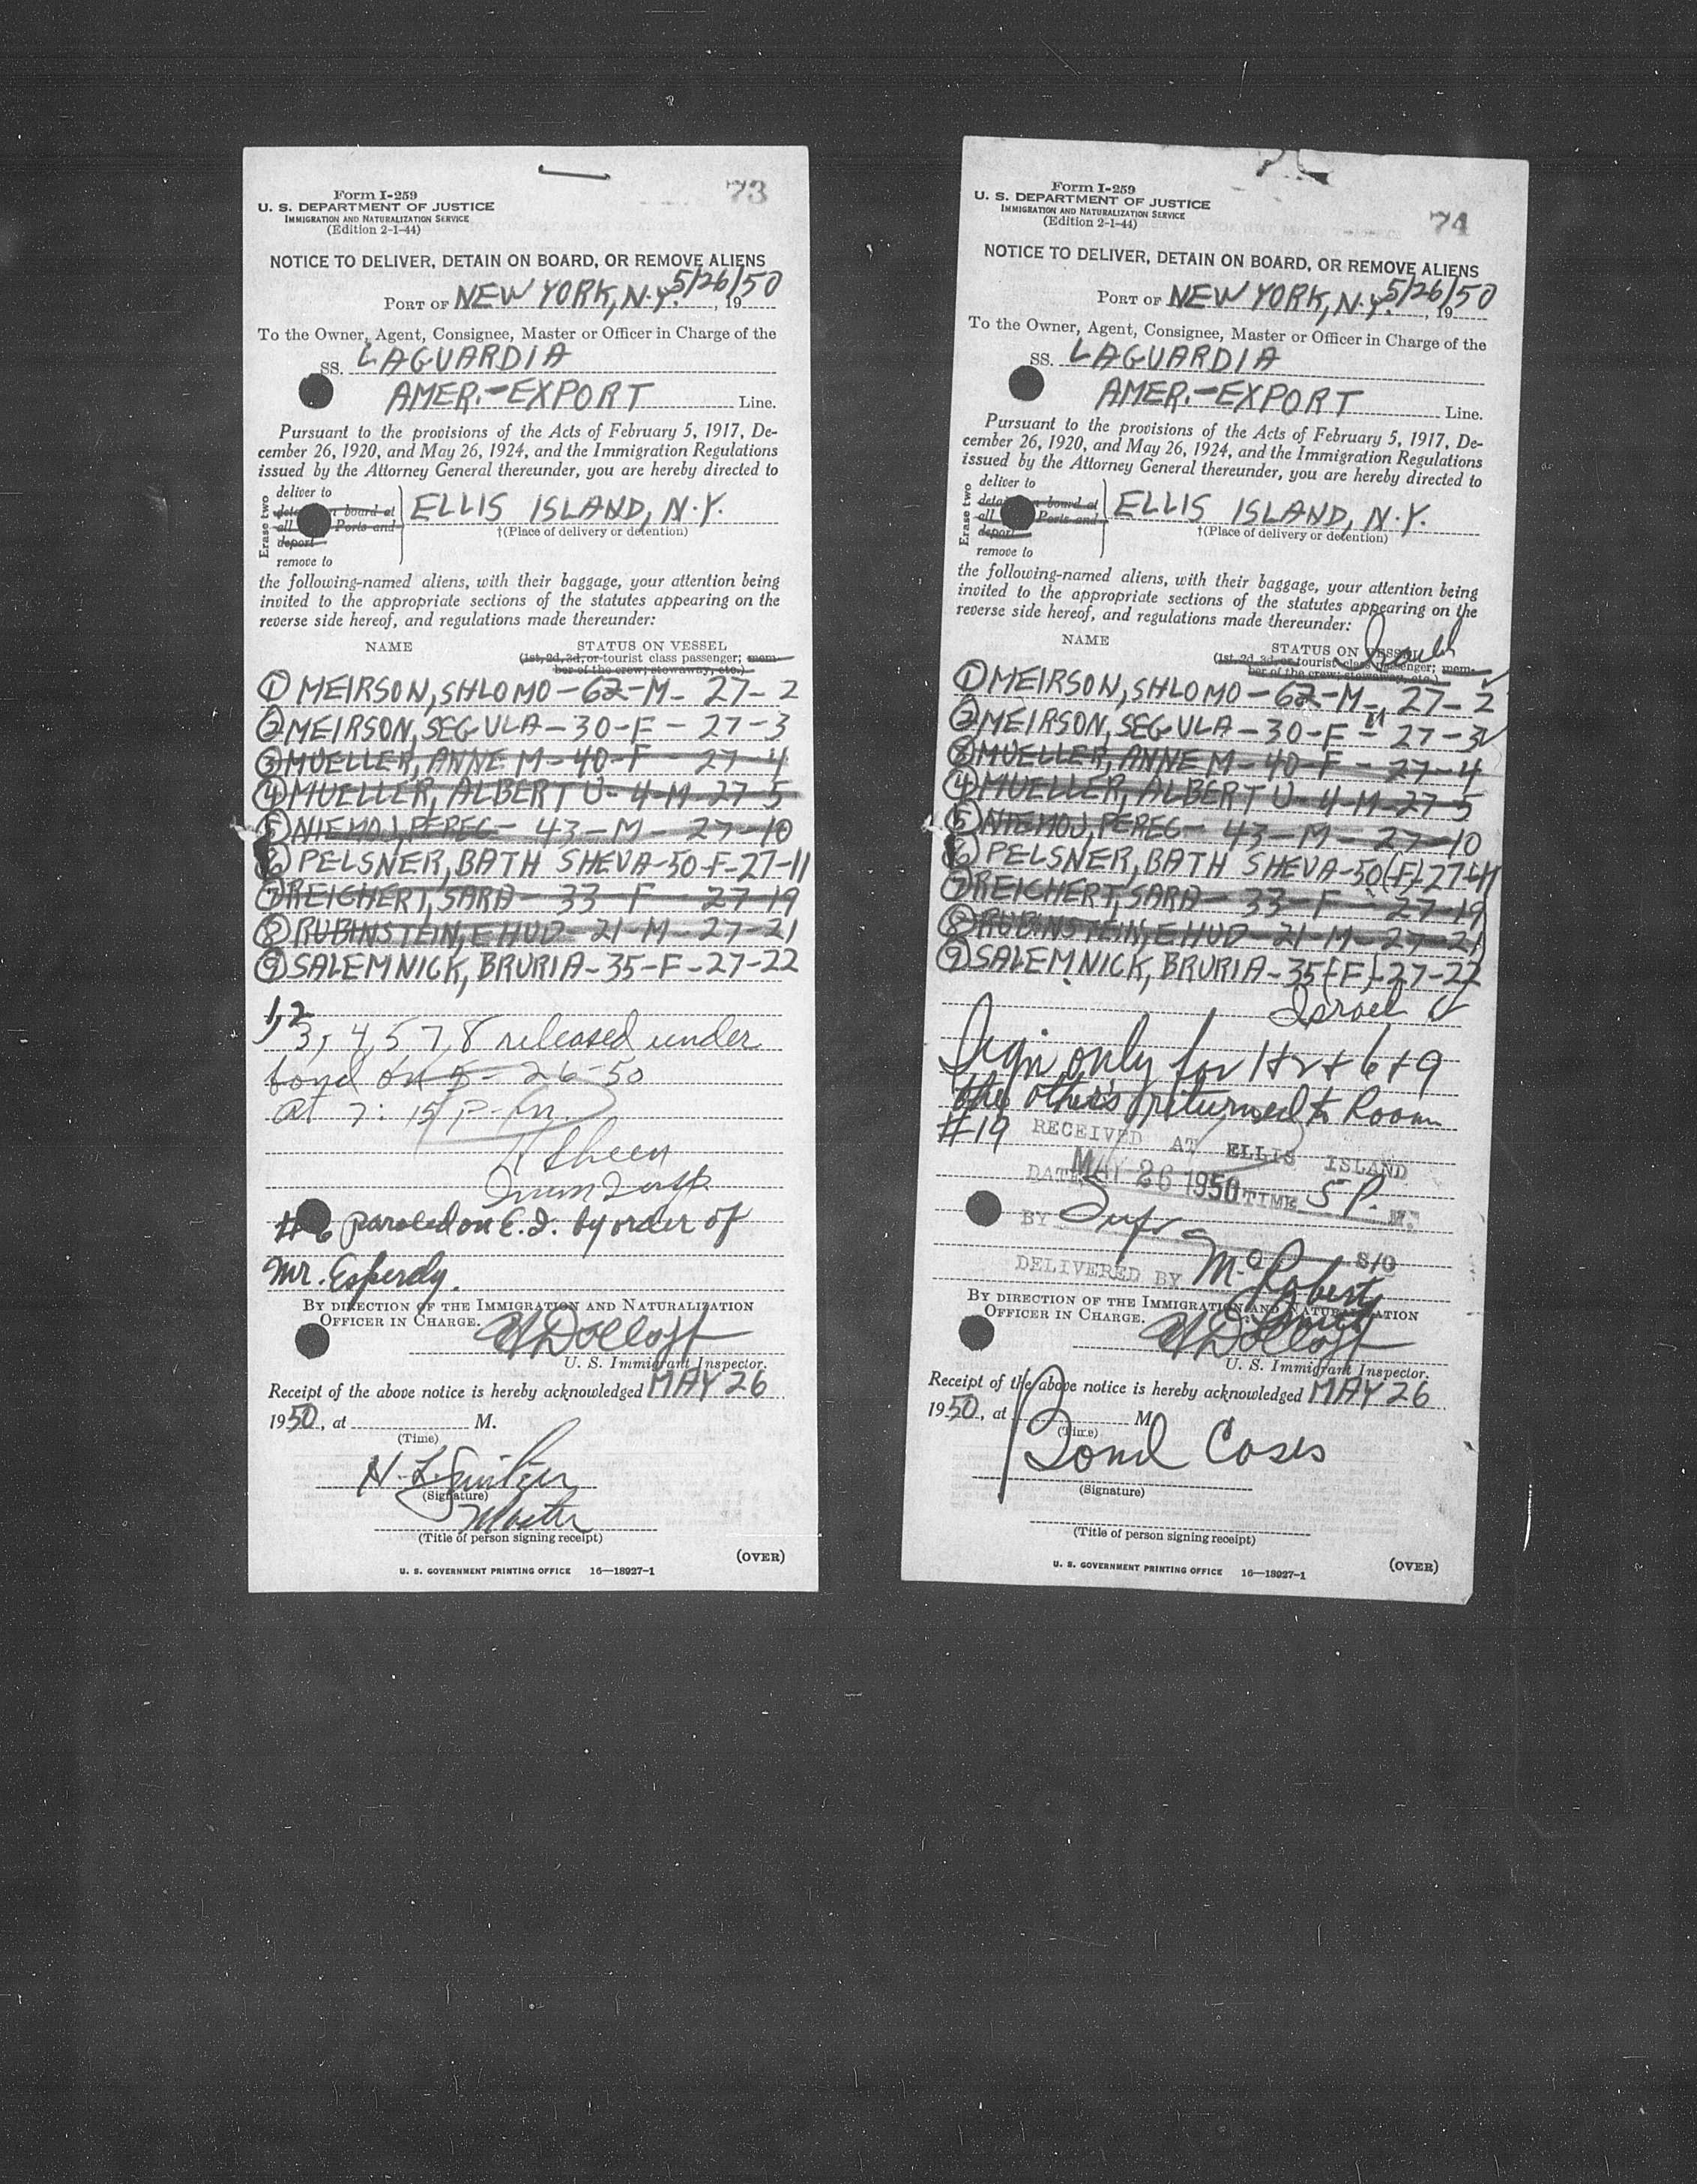 73
Form I-259
U. S. DEPARTMENT OF JUSTICE
IMMIGRATION AND NATURALIZATION SERVICE
(Edition 2-1-44)
NOTICE TO DELIVER, DETAIN ON BOARD, OR REMOVE ALIENS
PORT OF NEW YORK, N.Y. 5/26/50, 19
To the Owner, Agent, Consignee, Master or Officer in Charge of the
SS. LAGUARDIA
AMER.-EXPORT Line.
Pursuant to the provisions of the Acts of February 5, 1917, De-
cember 26, 1920, and May 26, 1924, and the Immigration Regulations
issued by the Attorney General thereunder, you are hereby directed to
Erase two
deliver to
board at
all Ports and
deport
remove to
ELLIS ISLAND, N.Y.
†(Place of delivery or detention)
the following-named aliens, with their baggage, your attention being
invited to the appropriate sections of the statutes appearing on the
reverse side hereof, and regulations made thereunder:
NAME STATUS ON VESSEL
(1st, 2d, 3d, or tourist class passenger; mem-
ber of the crew; stowaway, etc.)
① MEIRSON, SHLOMO - 62 - M - 27 - 2
② MEIRSON, SEGULA - 30 - F - 27 - 3
③ MUELLER, ANNE M - 40 - F - 27 - 4
④ MUELLER, ALBERT U - 4 - M - 27 - 5
⑤ NIEMOJ, PEREC - 43 - M - 27 - 10
⑥ PELSNER, BATH SHEVA - 50 - F - 27 - 11
⑦ REICHERT, SARA - 33 - F - 27 - 19
⑧ RUBINSTEIN, EHUD - 21 - M - 27 - 21
⑨ SALEMNICK, BRURIA - 35 - F - 27 - 22
1, 2
3, 4, 5 7, 8 released under
bond on 5-26-50
at 7:15 P.m.
Sheen
#6 paroled on E.I. by order of
Mr. Esperdy.
BY DIRECTION OF THE IMMIGRATION AND NATURALIZATION
OFFICER IN CHARGE.
U. S. Immigrant Inspector.
Receipt of the above notice is hereby acknowledged MAY 26
1950, at M.
(Time)
(Signature)
Master
(Title of person signing receipt)
(OVER)
U. S. GOVERNMENT PRINTING OFFICE 16—18927-1
74
Form I-259
U. S. DEPARTMENT OF JUSTICE
IMMIGRATION AND NATURALIZATION SERVICE
(Edition 2-1-44)
NOTICE TO DELIVER, DETAIN ON BOARD, OR REMOVE ALIENS
PORT OF NEW YORK, N.Y. 5/26/50, 19
To the Owner, Agent, Consignee, Master or Officer in Charge of the
SS. LAGUARDIA
AMER.-EXPORT Line.
Pursuant to the provisions of the Acts of February 5, 1917, De-
cember 26, 1920, and May 26, 1924, and the Immigration Regulations
issued by the Attorney General thereunder, you are hereby directed to
Erase two
deliver to
board at
all Ports and
deport
remove to
ELLIS ISLAND, N.Y.
†(Place of delivery or detention)
the following-named aliens, with their baggage, your attention being
invited to the appropriate sections of the statutes appearing on the
reverse side hereof, and regulations made thereunder:
NAME STATUS ON VESSEL
(1st, 2d, 3d, or tourist class passenger; mem-
ber of the crew; stowaway, etc.)
① MEIRSON, SHLOMO - 62 - M - 27 - 2
② MEIRSON, SEGULA - 30 - F - 27 - 3
③ MUELLER, ANNE M - 40 - F - 27 - 4
④ MUELLER, ALBERT U - 4 - M - 27 - 5
⑤ NIEMOJ, PEREC - 43 - M - 27 - 10
⑥ PELSNER, BATH SHEVA - 50 (F) - 27 - 11
⑦ REICHERT, SARA - 33 - F - 27 - 19
⑧ RUBINSTEIN, EHUD - 21 - M - 27 - 21
⑨ SALEMNICK, BRURIA - 35 (F) - 27 - 22
Israel
Sign only for 1+2+6+9
the others returned to Room
#19
RECEIVED AT ELLIS ISLAND
DATE MAY 26 1950 TIME 5 P. M.
BY S/O
DELIVERED BY
BY DIRECTION OF THE IMMIGRATION AND NATURALIZATION
OFFICER IN CHARGE.
U. S. Immigrant Inspector.
Receipt of the above notice is hereby acknowledged MAY 26
1950, at M.
(Time)
Bond Cases
(Signature)
(Title of person signing receipt)
(OVER)
U. S. GOVERNMENT PRINTING OFFICE 16—18927-1